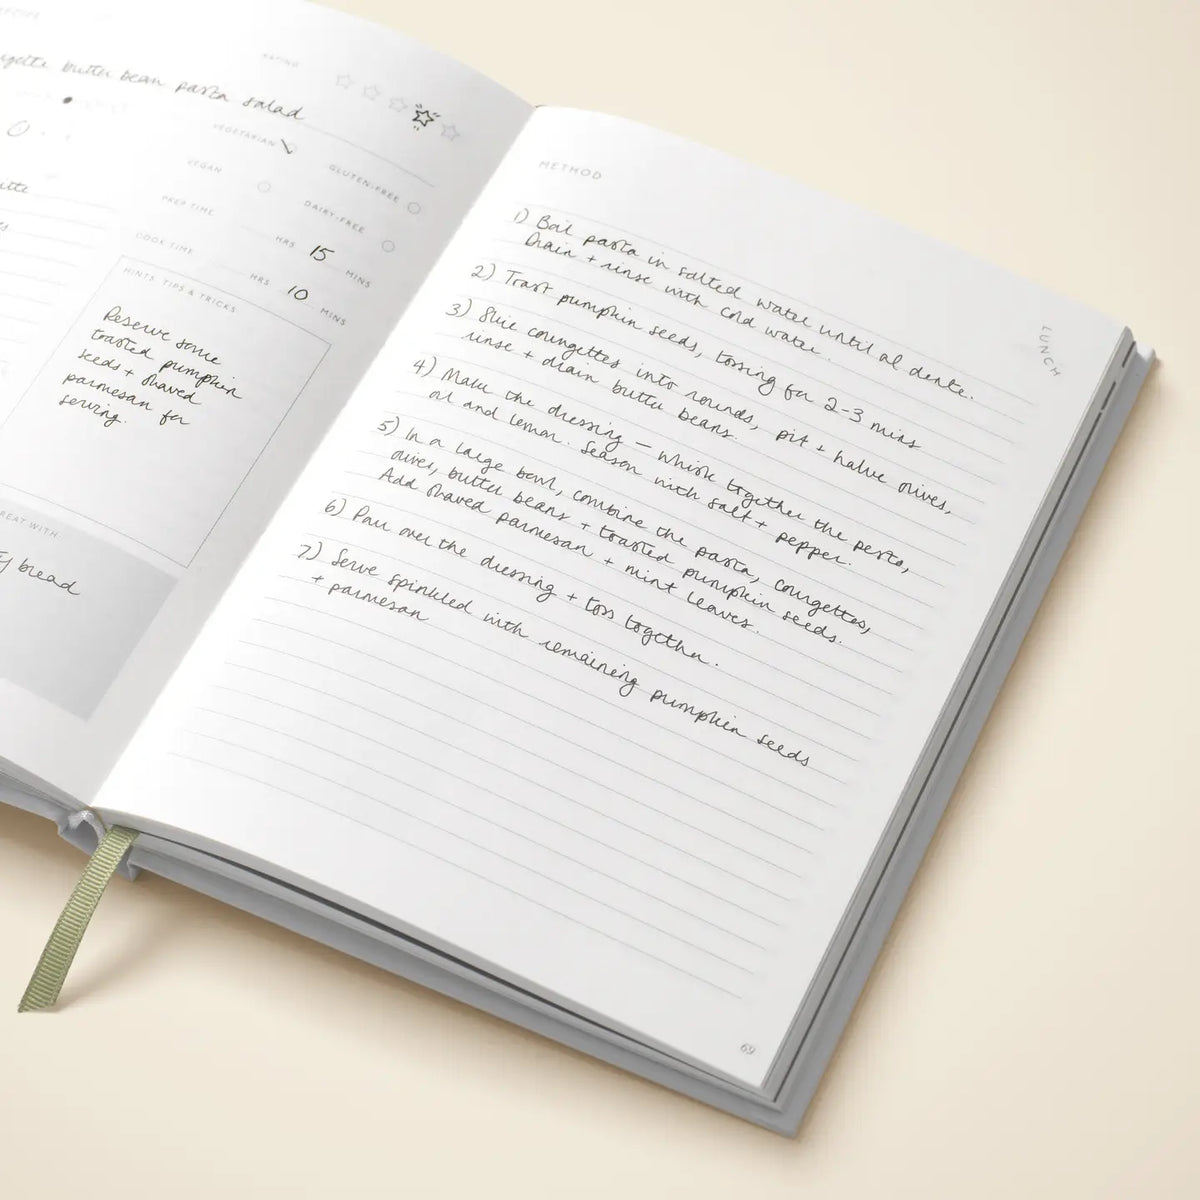 butter bean pasta salad
RATING
VEGETARIAN
GLUTEN-FREE
VEGAN
DAIRY-FREE
PREP TIME HRS 15 MINS
COOK TIME HRS 10 MINS
HINTS, TIPS & TRICKS
Reserve some
toasted pumpkin
seeds + shaved
parmesan for
serving.
WITH
bread
METHOD
1) Boil pasta in salted water until al dente.
Drain + rinse with cold water.
2) Toast pumpkin seeds, tossing for 2-3 mins
3) Slice courgettes into rounds, pit + halve olives,
rinse + drain butter beans.
4) Make the dressing – whisk together the pesto,
oil and lemon. Season with salt + pepper.
5) In a large bowl, combine the pasta, courgettes,
olives, butter beans + toasted pumpkin seeds.
Add shaved parmesan + mint leaves.
6) Pour over the dressing + toss together.
7) Serve spinkled with remaining pumpkin seeds
+ parmesan
LUNCH
69